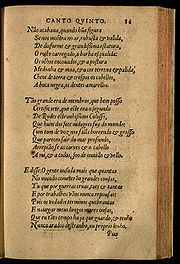 CANTO QVINTO. 86
Não acabaua, quando hũa figura
Se nos mostra no ar, robusta & valida,
De disforme & grandissima estatura,
O rosto carregado, a barba esqualida:
Os olhos encouados, & a postura
Medonha & má, & a cor terrena & palida,
Cheos de terra & crespos os cabellos,
A boca negra, os dentes amarellos.
Tão grande era de membros, que bem posso
Certificarte, que este era o segundo
De Rodes estranhissimo Colosso,
Que hum dos sete milagres foy do mundo:
Cum tom de voz nos falla horrendo & grosso
Que pareceo sair do mar profundo,
Arrepião se as carnes & o cabello
A mi, & a todos, so de ouuilo & vello.
E disse: O gente ousada mais que quantas
No mundo cometerão grandes cousas,
Tu que por guerras cruas, taes & tantas
E por trabalhos vãos nunca repousas:
Pois os vedados terminos quebrantas
E nauegar meus longos mares ousas,
Que eu tanto tempo ha ja que guardo, & tenho
Nunca arados destranho, ou proprio lenho.
Pois